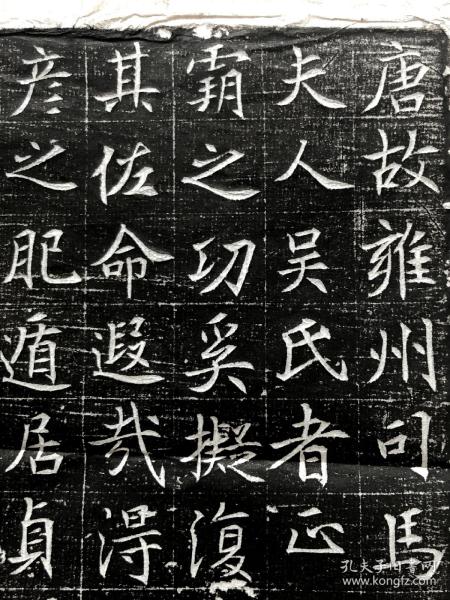 唐故雍州司马
夫人吴氏者正
霸之功奚擬復
其佐命遐哉得
彦之肥遁居貞
孔夫子旧书网